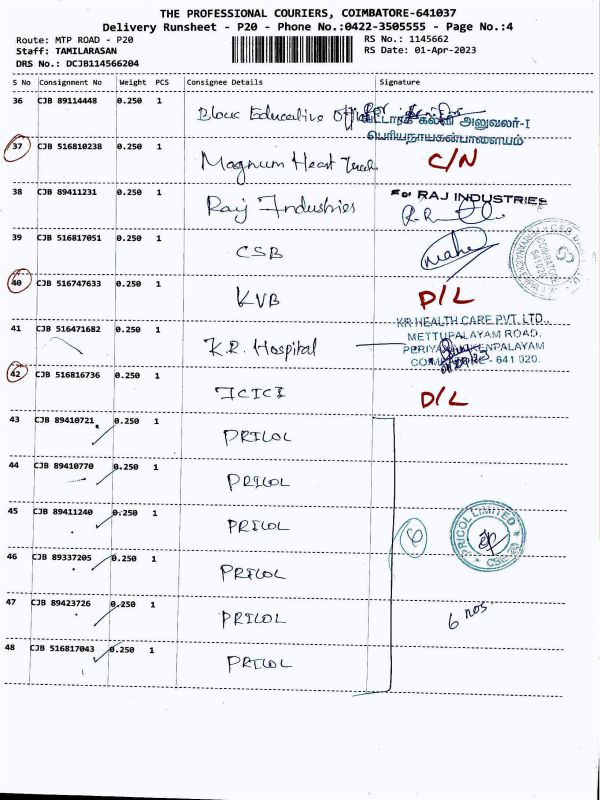 THE PROFESSIONAL COURIERS, COIMBATORE-641037
Delivery Runsheet - P20 - Phone No.:0422-3505555 - Page No.:4
Route: MTP ROAD - P20
RS No.: 1145662
Staff: TAMILARASAN
RS Date: 01-Apr-2023
DRS No.: DCJB114566204
S No Consignment No Weight PCS Consignee Details Signature
36 CJB 89114448 0.250 1 Block Educative Officer
வட்டாரக் கல்வி அலுவலர்-I
பெரியநாயக்கன்பாளையம்
37 CJB 516810238 0.250 1 Magnum Heat Treat C/N
38 CJB 89411231 0.250 1 Raj Industries For RAJ INDUSTRIES
39 CJB 516817051 0.250 1 CSB
40 CJB 516747633 0.250 1 KVB D/L
41 CJB 516471682 0.250 1 K.R. Hospital
KR HEALTH CARE PVT. LTD.,
METTUPALAYAM ROAD,
641 020.
42 CJB 516816736 0.250 1 ICICI D/L
43 CJB 89410721 0.250 1 PRICOL
44 CJB 89410770 0.250 1 PRICOL
45 CJB 89411240 0.250 1 PRICOL
6
PRICOL LIMITED
46 CJB 89337205 0.250 1 PRICOL
47 CJB 89423726 0.250 1 PRICOL
6 nos.
48 CJB 516817043 0.250 1 PRICOL